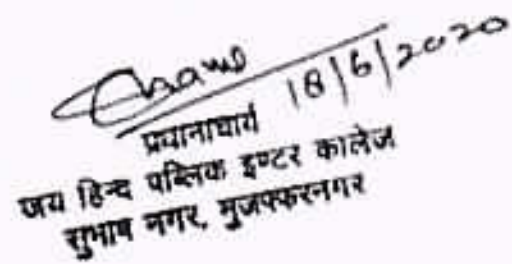 18/6/2020
प्रधानाचार्य
जय हिन्द पब्लिक इण्टर कालेज
सुभाष नगर, मुजफ्फरनगर